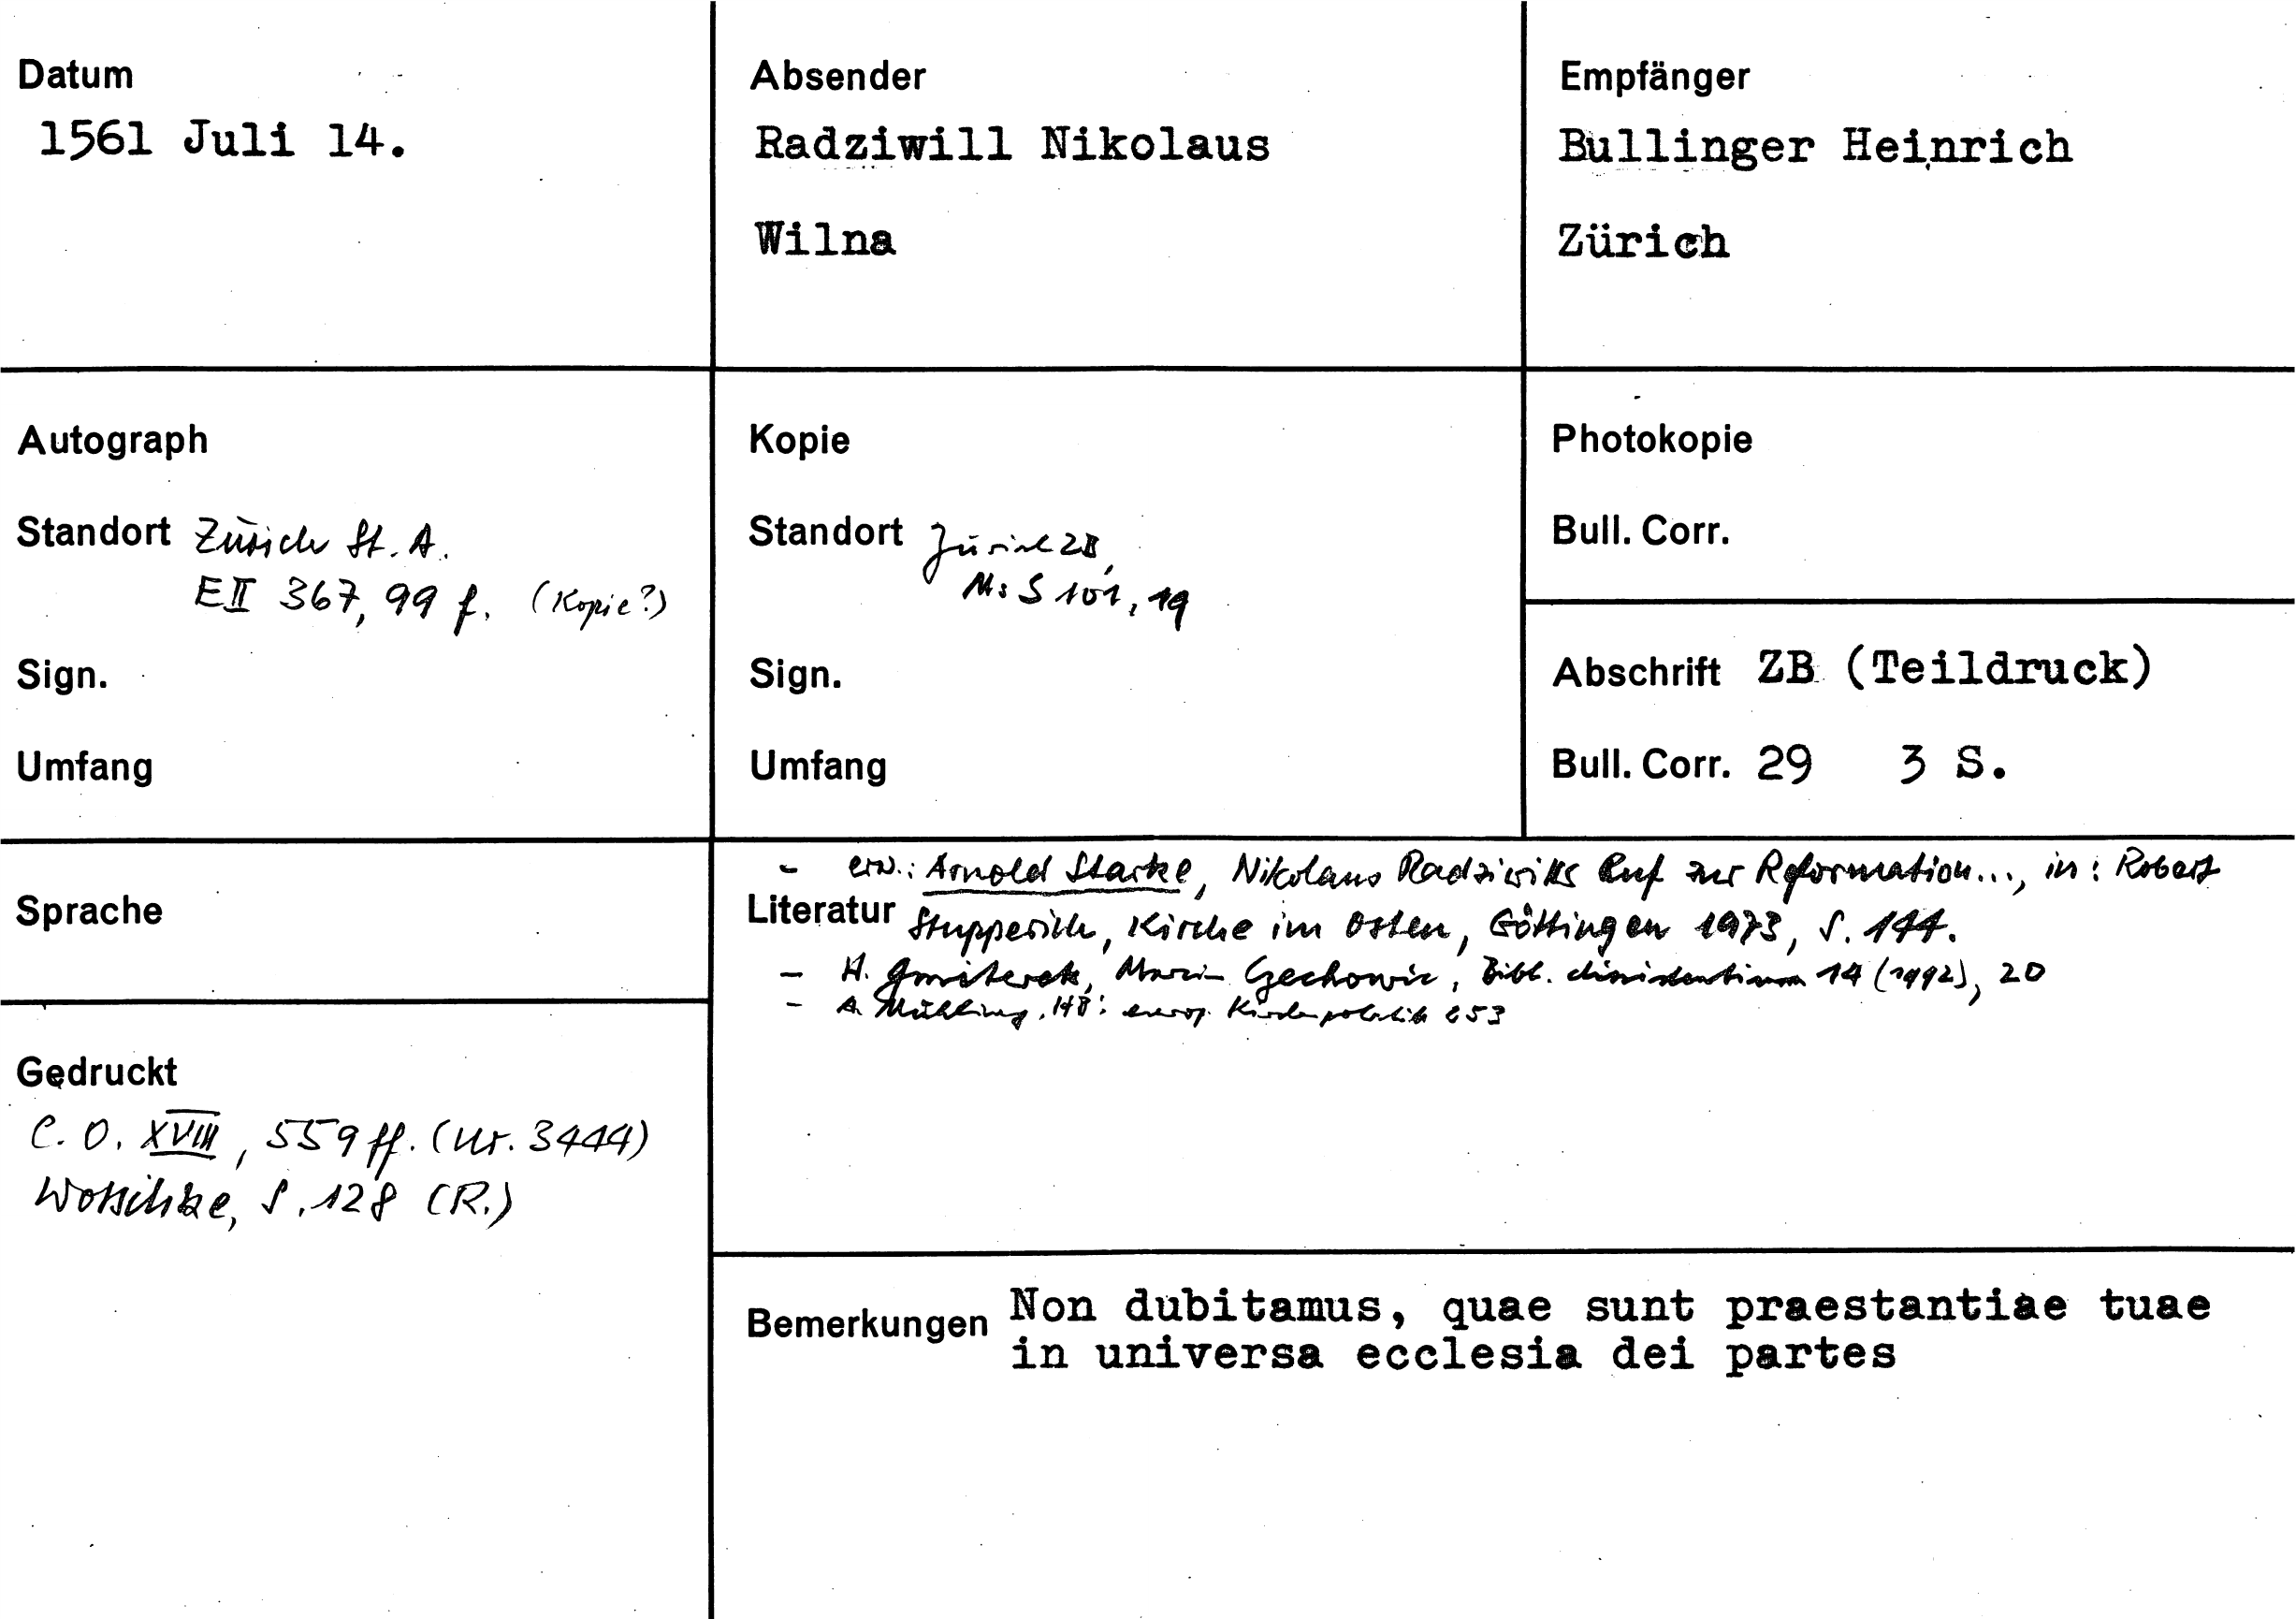 Datum
1561 Juli 14.
Absender
Radziwill Nikolaus
Wilna
Empfänger
Bullinger Heinrich
Zürich
Autograph
Standort Zürich St. A.
E II 367, 99 f. (Kopie?)
Sign.
Umfang
Kopie
Standort Zürich ZB,
Ms S 101, 19
Sign.
Umfang
Photokopie
Bull. Corr.
Abschrift ZB (Teildruck)
Bull. Corr. 29 3 S.
Sprache
Gedruckt
C. O. XVIII, 559 ff. (Nr. 3444)
Wotschke, S. 128 (R.)
- erw.: Arnold Starke, Nikolaus Radziwills Ruf zur Reformation..., in: Robert
Literatur Stupperich, Kirche im Osten, Göttingen 1973, S. 144.
- H. Gmiterek, Marcin Czechowic, Bibl. dissidentium 14 (1992), 20
- A. Mühling, HB: europ. Kirchenpolitik 253
Bemerkungen Non dubitamus, quae sunt praestantiae tuae
in universa ecclesia dei partes